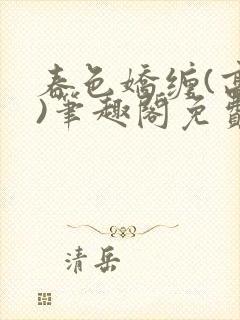 春色嬌纏(
)筆趣閣免
清岳